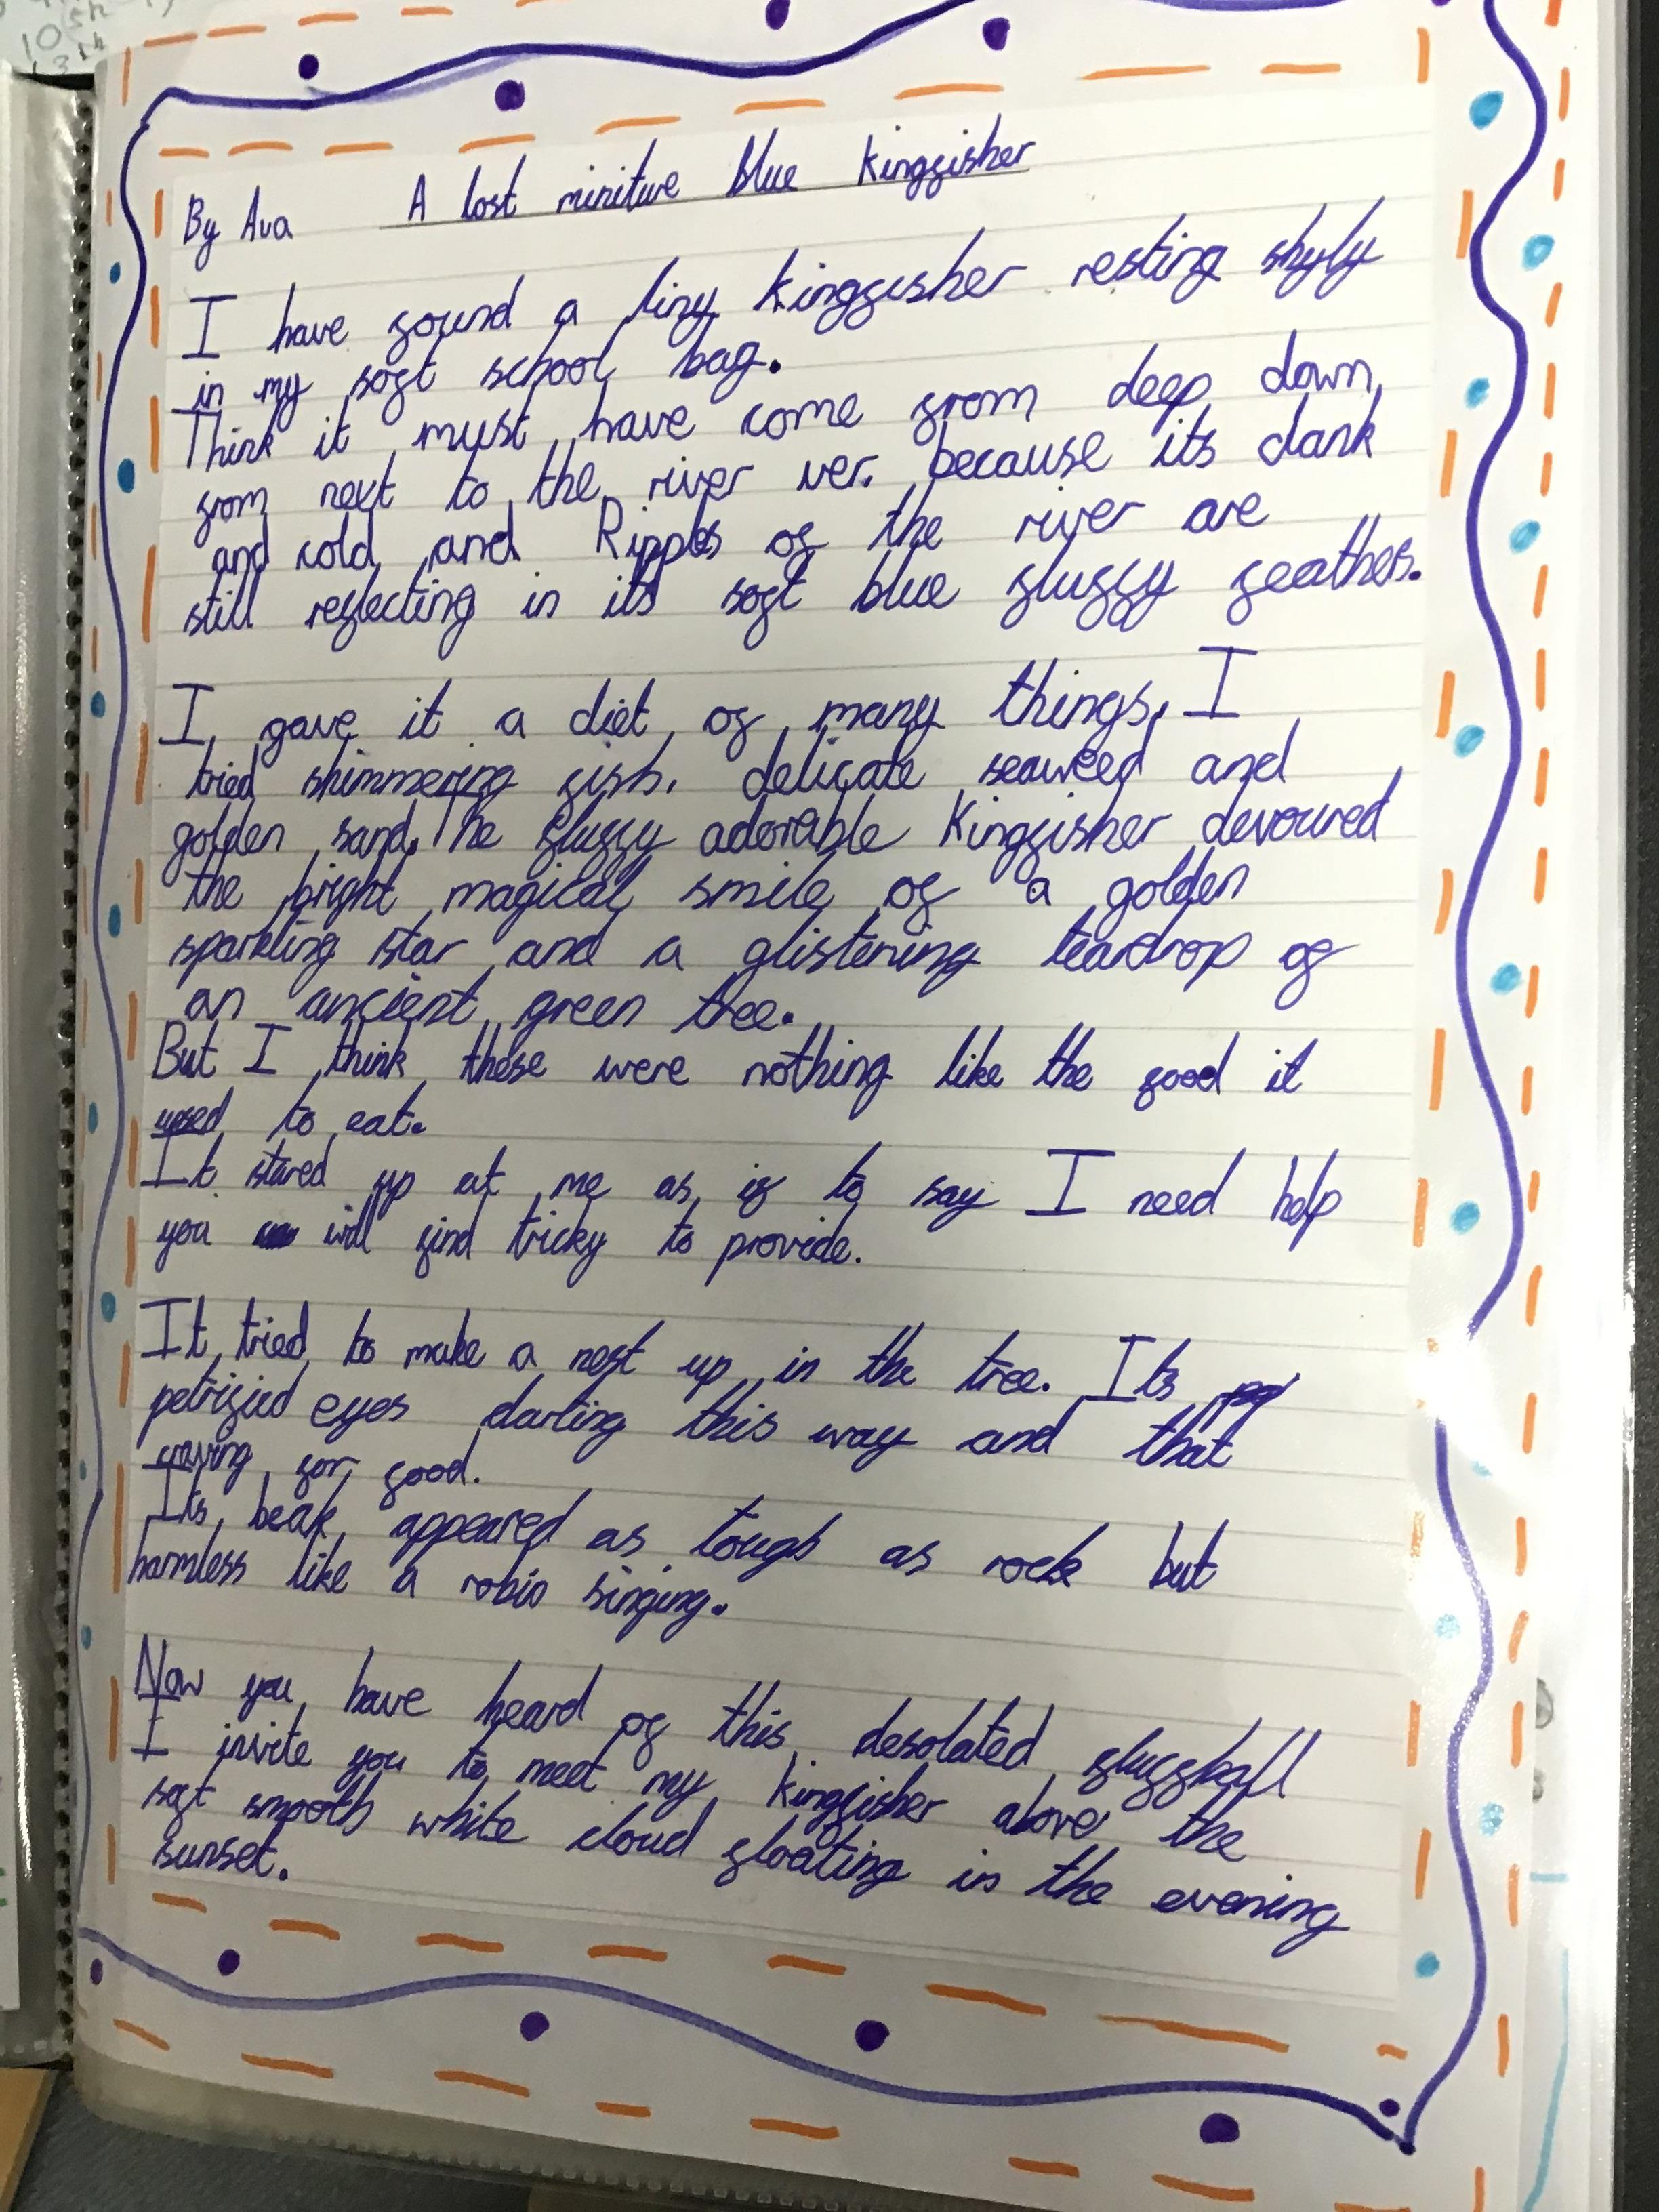 10th
13th
By Ava A lost miniture blue kingfisher
I have found a tiny kingfisher resting shyly
in my soft school bag.
Think it must have come from deep down,
from next to the river ver. because its dank
and cold and Ripples of the river are
still reflecting in its soft blue fluffy feathers.
I gave it a diet of many things, I
tried shimmering fish, delicate seaweed and
golden sand. The fluffy adorable Kingfisher devoured
the bright magical smile of a golden
sparkling star and a glistening teardrop of
an ancient green tree.
But I think these were nothing like the food it
used to eat.
It stared up at me as if to say I need help
you will find tricky to provide.
It tried to make a nest up in the tree. Its
petrified eyes darting this way and that
craving for food.
Its beak appeared as tough as rock but
harmless like a robin singing.
Now you have heard of this desolated fluffball
I invite you to meet my kingfisher above the
soft smooth white cloud floating in the evening
sunset.